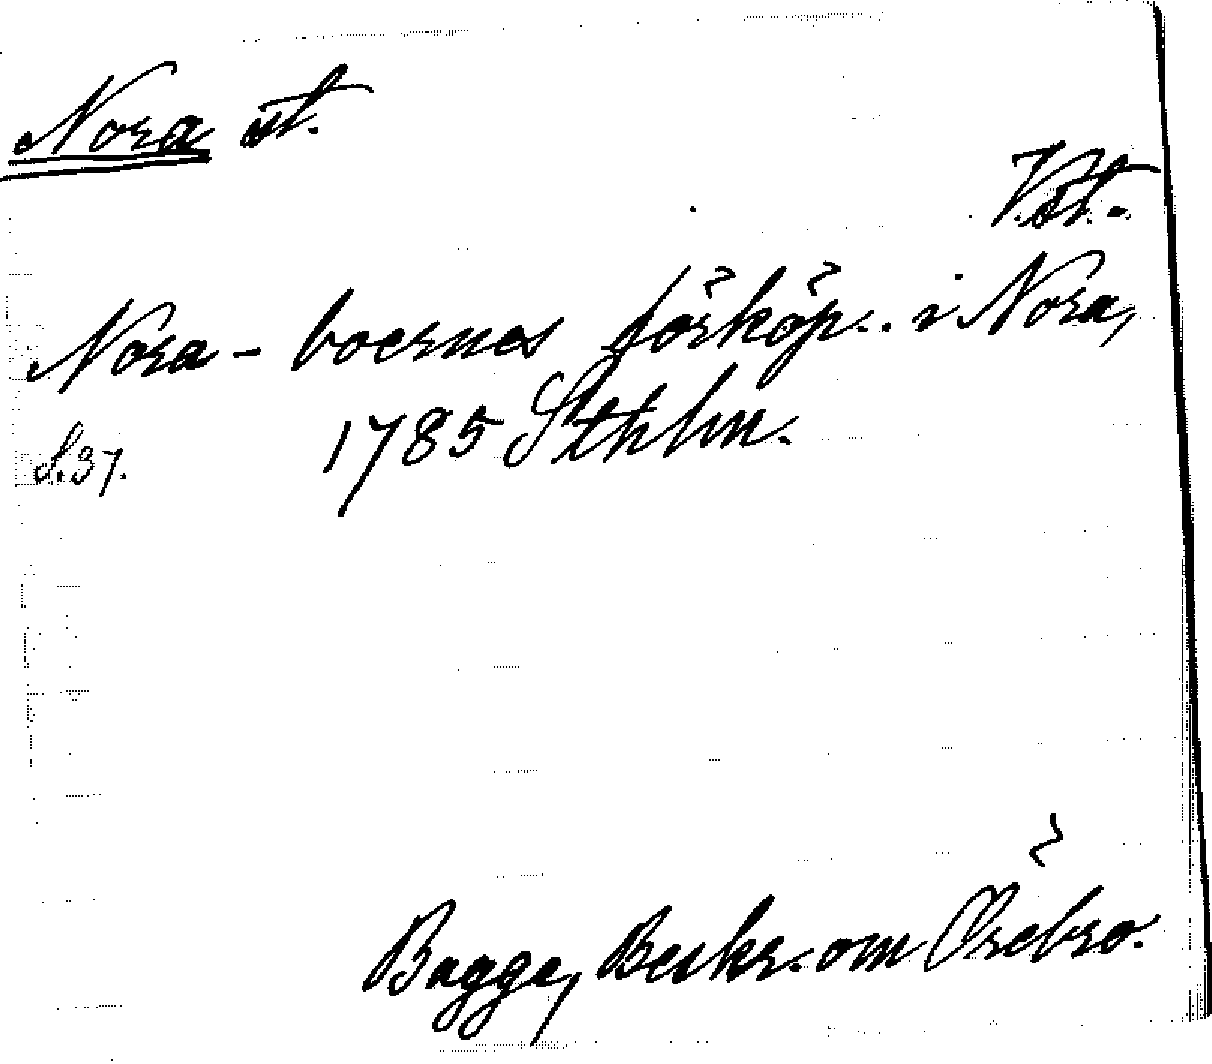 Nora st.
Vstl.
Nora-boernes förköp. i Nora,
S. 37. 1785 Sthlm.
Bagge, Beskr. om Örebro.